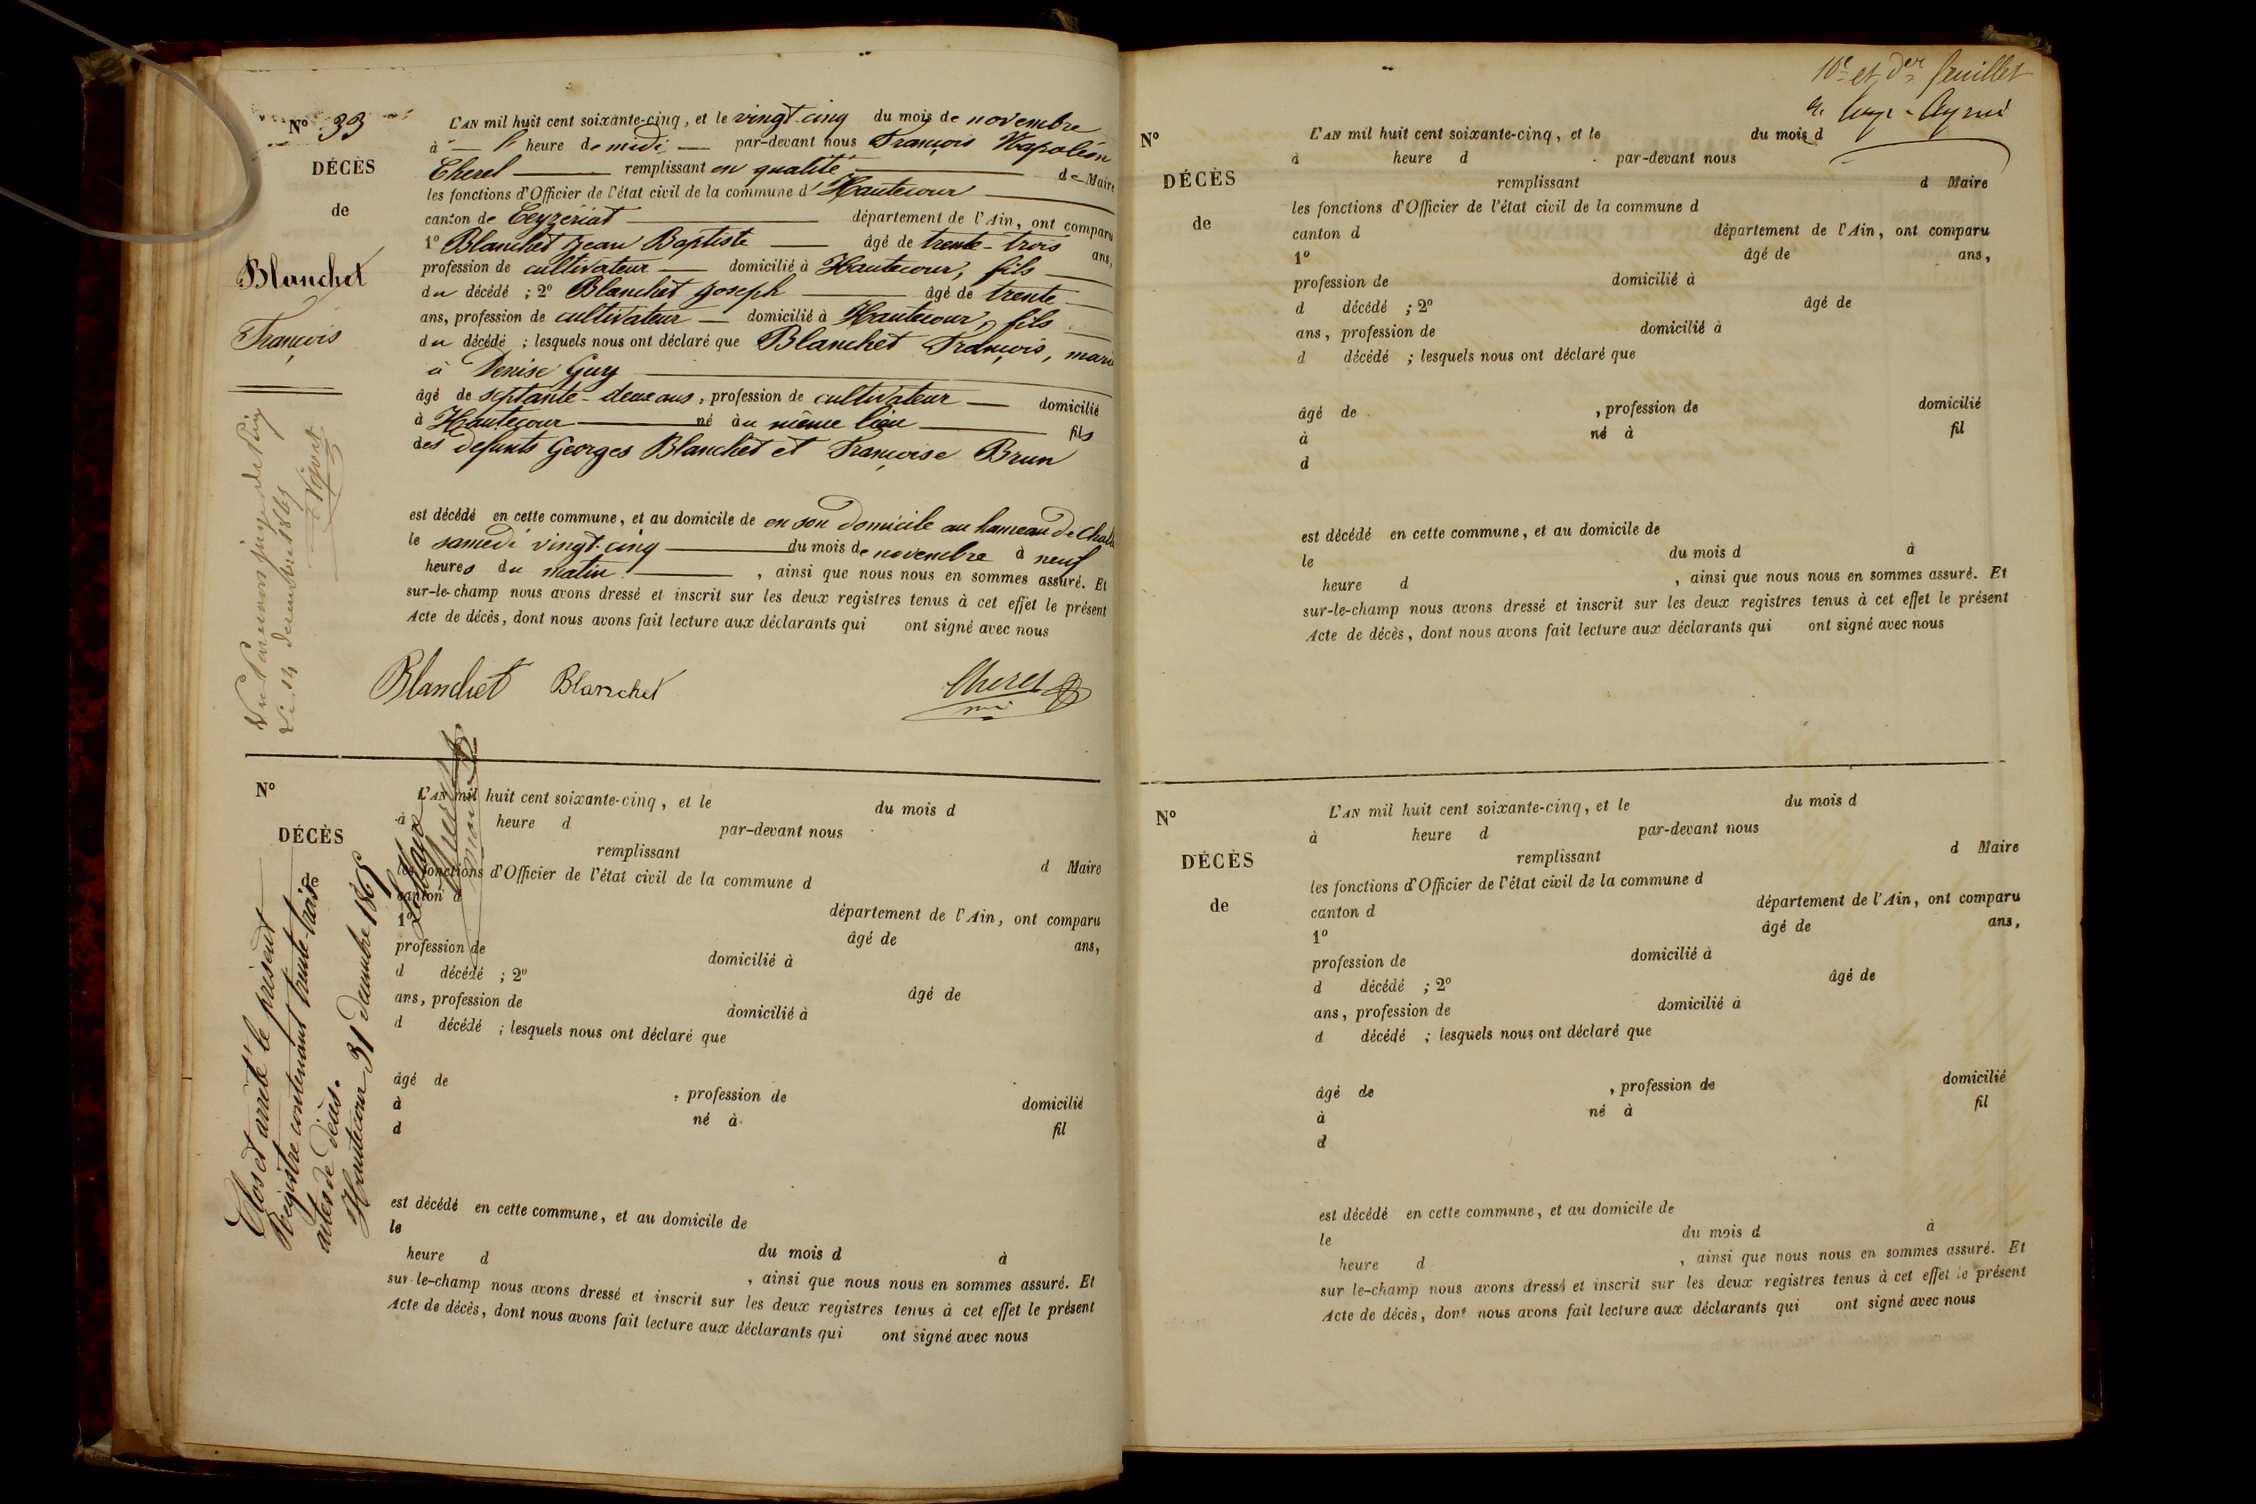 N° 33
DÉCÈS
de
Blanchet
François
L'AN mil huit cent soixante-cinq, et le vingt-cinq du mois de novembre
à l' heure de midi par-devant nous François Napoléon
Cherel remplissant en qualité de Maire
les fonctions d'Officier de l'état civil de la commune d'Hautecour
canton de Ceyzériat département de l'Ain, ont comparu
1° Blanchet Jean Baptiste âgé de trente-trois ans,
profession de cultivateur domicilié à Hautecour, fils
du décédé ; 2° Blanchet Joseph âgé de trente
ans, profession de cultivateur domicilié à Hautecour, fils
du décédé ; lesquels nous ont déclaré que Blanchet François, mari
à Denise Guy
âgé de septante-deux ans, profession de cultivateur domicilié
à Hautecour né au même lieu fils
des defunts Georges Blanchet et Françoise Brun
est décédé en cette commune, et au domicile de en son domicile au hameau de
le samedi vingt-cinq du mois de novembre à neuf
heures du matin, ainsi que nous nous en sommes assuré. Et
sur-le-champ nous avons dressé et inscrit sur les deux registres tenus à cet effet le présent
Acte de décès, dont nous avons fait lecture aux déclarants qui ont signé avec nous
Blanchet Blanchet Cherel
Vu Par nous juge de Paix
Le 14 décembre 1865
N°
DÉCÈS
de
L'AN mil huit cent soixante-cinq, et le du mois d
à heure d par-devant nous
remplissant d Maire
les fonctions d'Officier de l'état civil de la commune d
canton d département de l'Ain, ont comparu
1° âgé de ans,
profession de domicilié à
d décédé ; 2° âgé de
ans, profession de domicilié à
d décédé ; lesquels nous ont déclaré que
âgé de , profession de domicilié
à né à fil
d
est décédé en cette commune, et au domicile de
le du mois d à
heure d , ainsi que nous nous en sommes assuré. Et
sur-le-champ nous avons dressé et inscrit sur les deux registres tenus à cet effet le présent
Acte de décès, dont nous avons fait lecture aux déclarants qui ont signé avec nous
Clos et arrêté le présent
Registre contenant trente-trois
actes de décès.
Hautecour 31 décembre 1865
Le Maire
Cherel
10e et der feuillet
N°
DÉCÈS
de
L'AN mil huit cent soixante-cinq, et le du mois d
à heure d par-devant nous
remplissant d Maire
les fonctions d'Officier de l'état civil de la commune d
canton d département de l'Ain, ont comparu
1° âgé de ans,
profession de domicilié à
d décédé ; 2° âgé de
ans, profession de domicilié à
d décédé ; lesquels nous ont déclaré que
âgé de , profession de domicilié
à né à fil
d
est décédé en cette commune, et au domicile de
le du mois d à
heure d , ainsi que nous nous en sommes assuré. Et
sur-le-champ nous avons dressé et inscrit sur les deux registres tenus à cet effet le présent
Acte de décès, dont nous avons fait lecture aux déclarants qui ont signé avec nous
N°
DÉCÈS
de
L'AN mil huit cent soixante-cinq, et le du mois d
à heure d par-devant nous
remplissant d Maire
les fonctions d'Officier de l'état civil de la commune d
canton d département de l'Ain, ont comparu
1° âgé de ans,
profession de domicilié à
d décédé ; 2° âgé de
ans, profession de domicilié à
d décédé ; lesquels nous ont déclaré que
âgé de , profession de domicilié
à né à fil
d
est décédé en cette commune, et au domicile de
le du mois d à
heure d , ainsi que nous nous en sommes assuré. Et
sur le-champ nous avons dressé et inscrit sur les deux registres tenus à cet effet le présent
Acte de décès, dont nous avons fait lecture aux déclarants qui ont signé avec nous